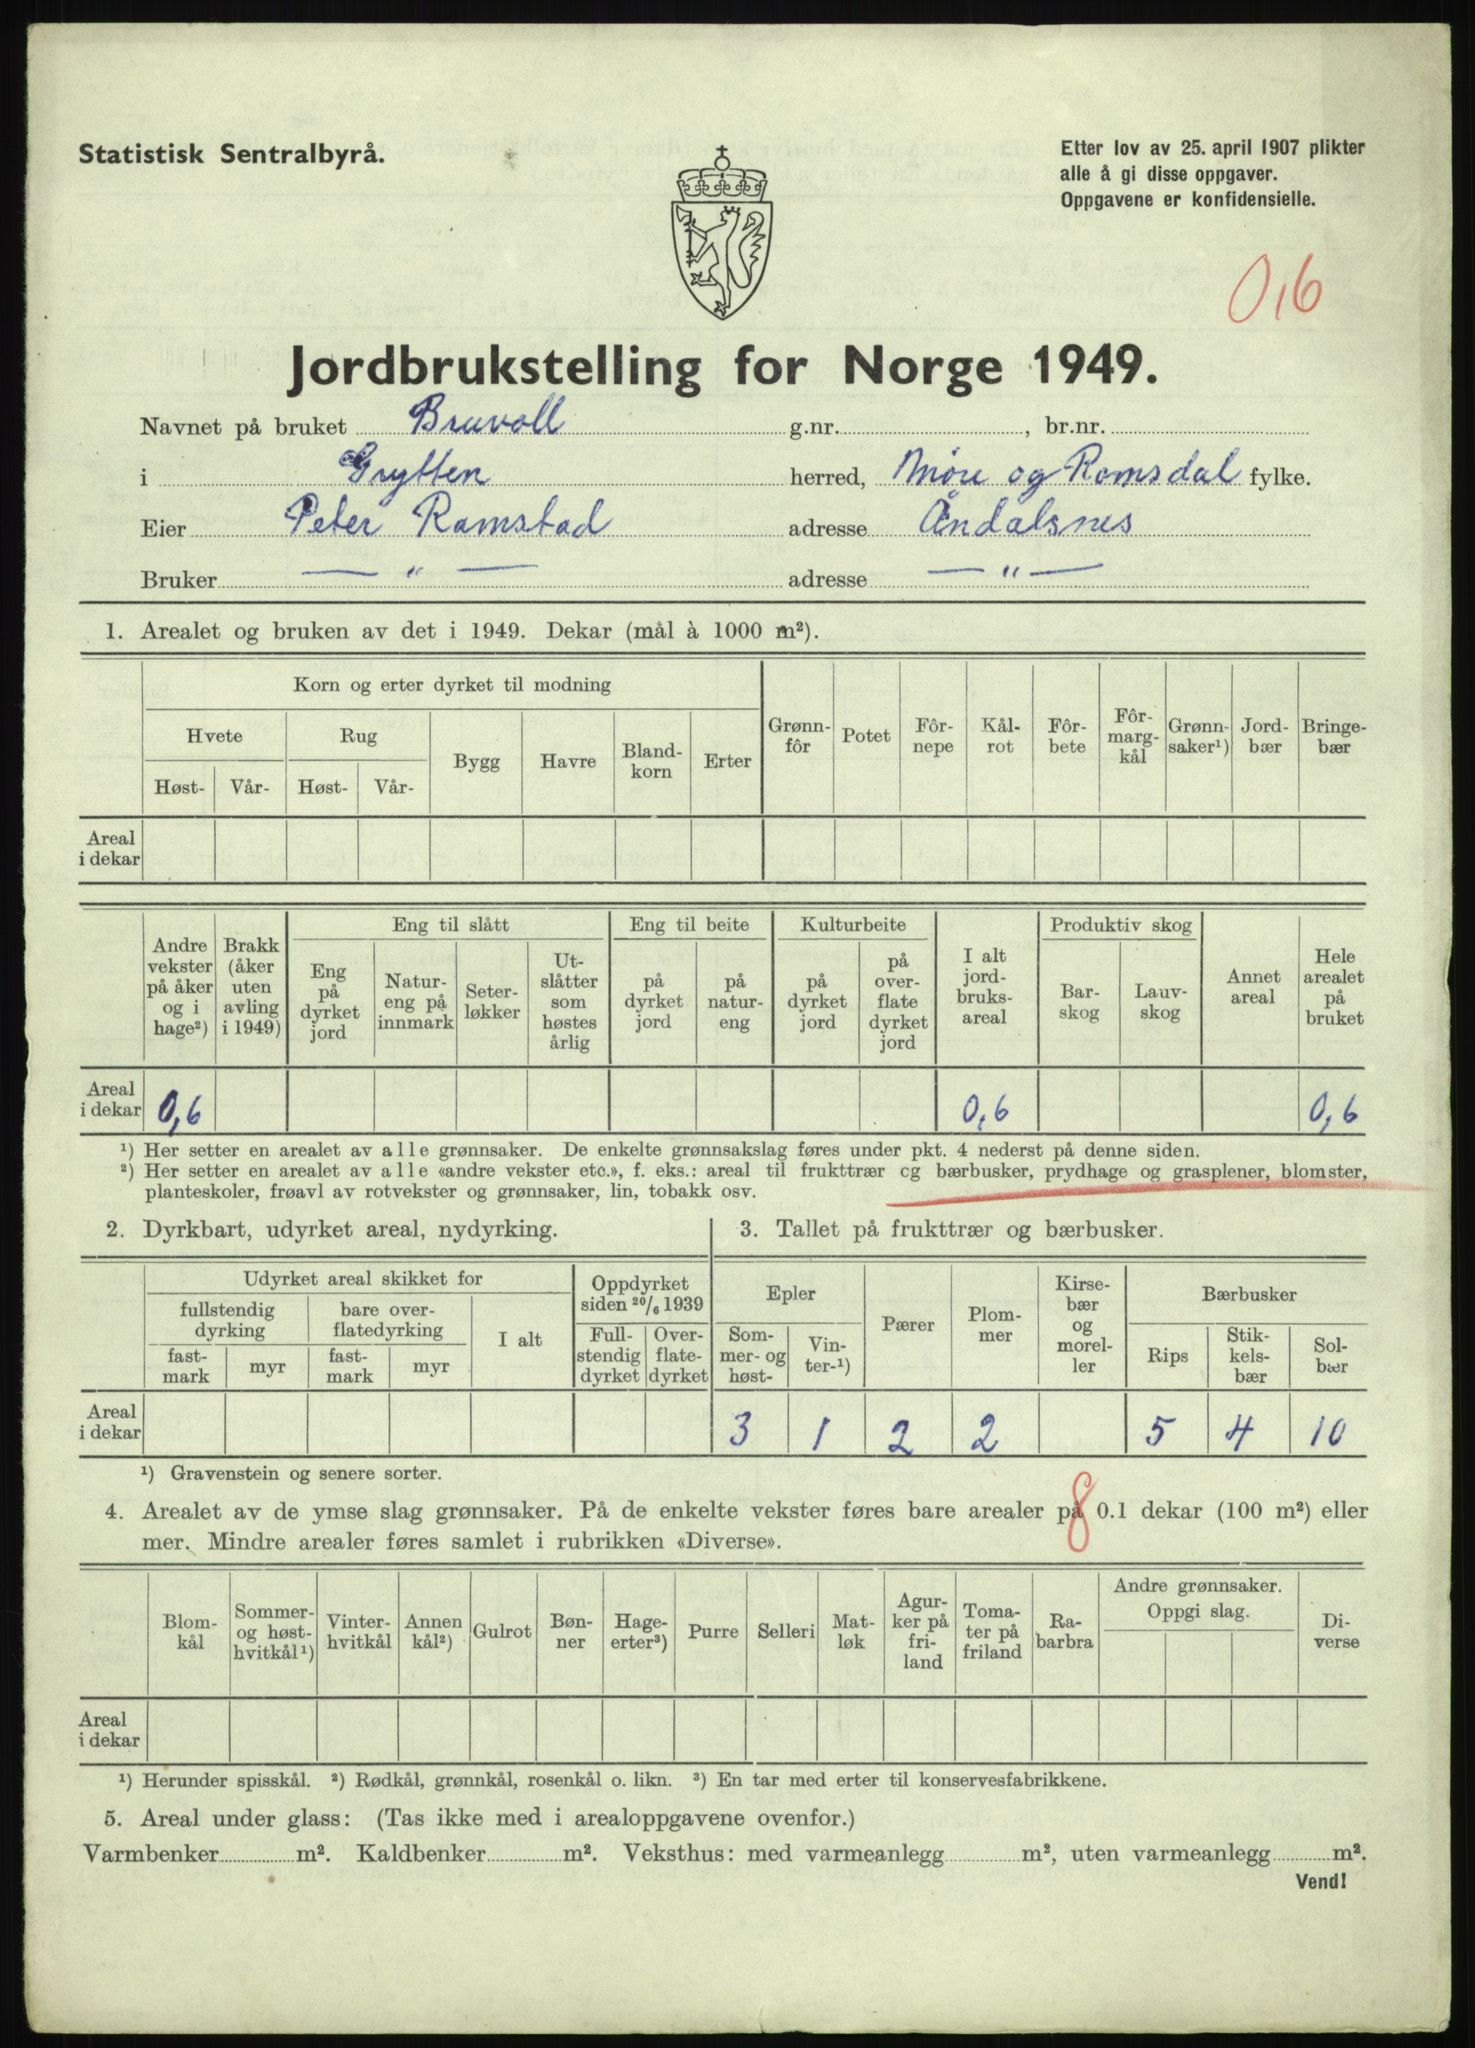 Statistisk Sentralbyrå.
Etter lov av 25. april 1907 plikter
alle å gi disse oppgaver.
Oppgavene er konfidensielle.
0,6
Jordbrukstelling for Norge 1949.
Navnet på bruket Bruvoll g.nr. , br.nr.
i Grytten herred, Møre og Romsdal fylke.
Eier Peter Ramstad adresse Åndalsnes
Bruker — " — adresse — " —
1. Arealet og bruken av det i 1949. Dekar (mål à 1000 m²).
Korn og erter dyrket til modning
Hvete Rug Bygg Havre Bland-korn Erter Grønn-fôr Potet Fôr-nepe Kål-rot Fôr-bete Fôr-marg-kål Grønn-saker¹) Jord-bær Bringe-bær
Høst- Vår- Høst- Vår-
Areal
i dekar
Andre vekster på åker og i hage²) Brakk (åker uten avling i 1949) Eng til slått Eng til beite Kulturbeite I alt jord-bruks-areal Produktiv skog Annet areal Hele arealet på bruket
Eng på dyrket jord Natur-eng på innmark Seter-løkker Ut-slåtter som høstes årlig på dyrket jord på natur-eng på dyrket jord på over-flate dyrket jord Bar-skog Lauv-skog
Areal
i dekar 0,6 0,6 0,6
¹) Her setter en arealet av alle grønnsaker. De enkelte grønnsakslag føres under pkt. 4 nederst på denne siden.
²) Her setter en arealet av alle «andre vekster etc.», f. eks.: areal til frukttrær cg bærbusker, prydhage og grasplener, blomster,
planteskoler, frøavl av rotvekster og grønnsaker, lin, tobakk osv.
2. Dyrkbart, udyrket areal, nydyrking.
Udyrket areal skikket for Oppdyrket siden 20/6 1939
fullstendig dyrking bare over-flatedyrking I alt Full-stendig dyrket Over-flate-dyrket
fast-mark myr fast-mark myr
3. Tallet på frukttrær og bærbusker.
Epler Pærer Plom-mer Kirse-bær og morel-ler Bærbusker
Som-mer- og høst- Vin-ter-¹) Rips Stik-kels-bær Sol-bær
Areal
i dekar 3 1 2 2 5 4 10
¹) Gravenstein og senere sorter.
8
4. Arealet av de ymse slag grønnsaker. På de enkelte vekster føres bare arealer på 0.1 dekar (100 m²) eller
mer. Mindre arealer føres samlet i rubrikken «Diverse».
Blom-kål Sommer- og høst-hvitkål¹) Vinter-hvitkål Annen kål²) Gulrot Bøn-ner Hage-erter³) Purre Selleri Mat-løk Agur-ker på fri-land Toma-ter på friland Ra-barbra Andre grønnsaker. Oppgi slag. Di-verse
Areal
i dekar
¹) Herunder spisskål. ²) Rødkål, grønnkål, rosenkål o. likn. ³) En tar med erter til konservesfabrikkene.
5. Areal under glass: (Tas ikke med i arealoppgavene ovenfor.)
Varmbenker m². Kaldbenker m². Veksthus: med varmeanlegg m², uten varmeanlegg m².
Vend!